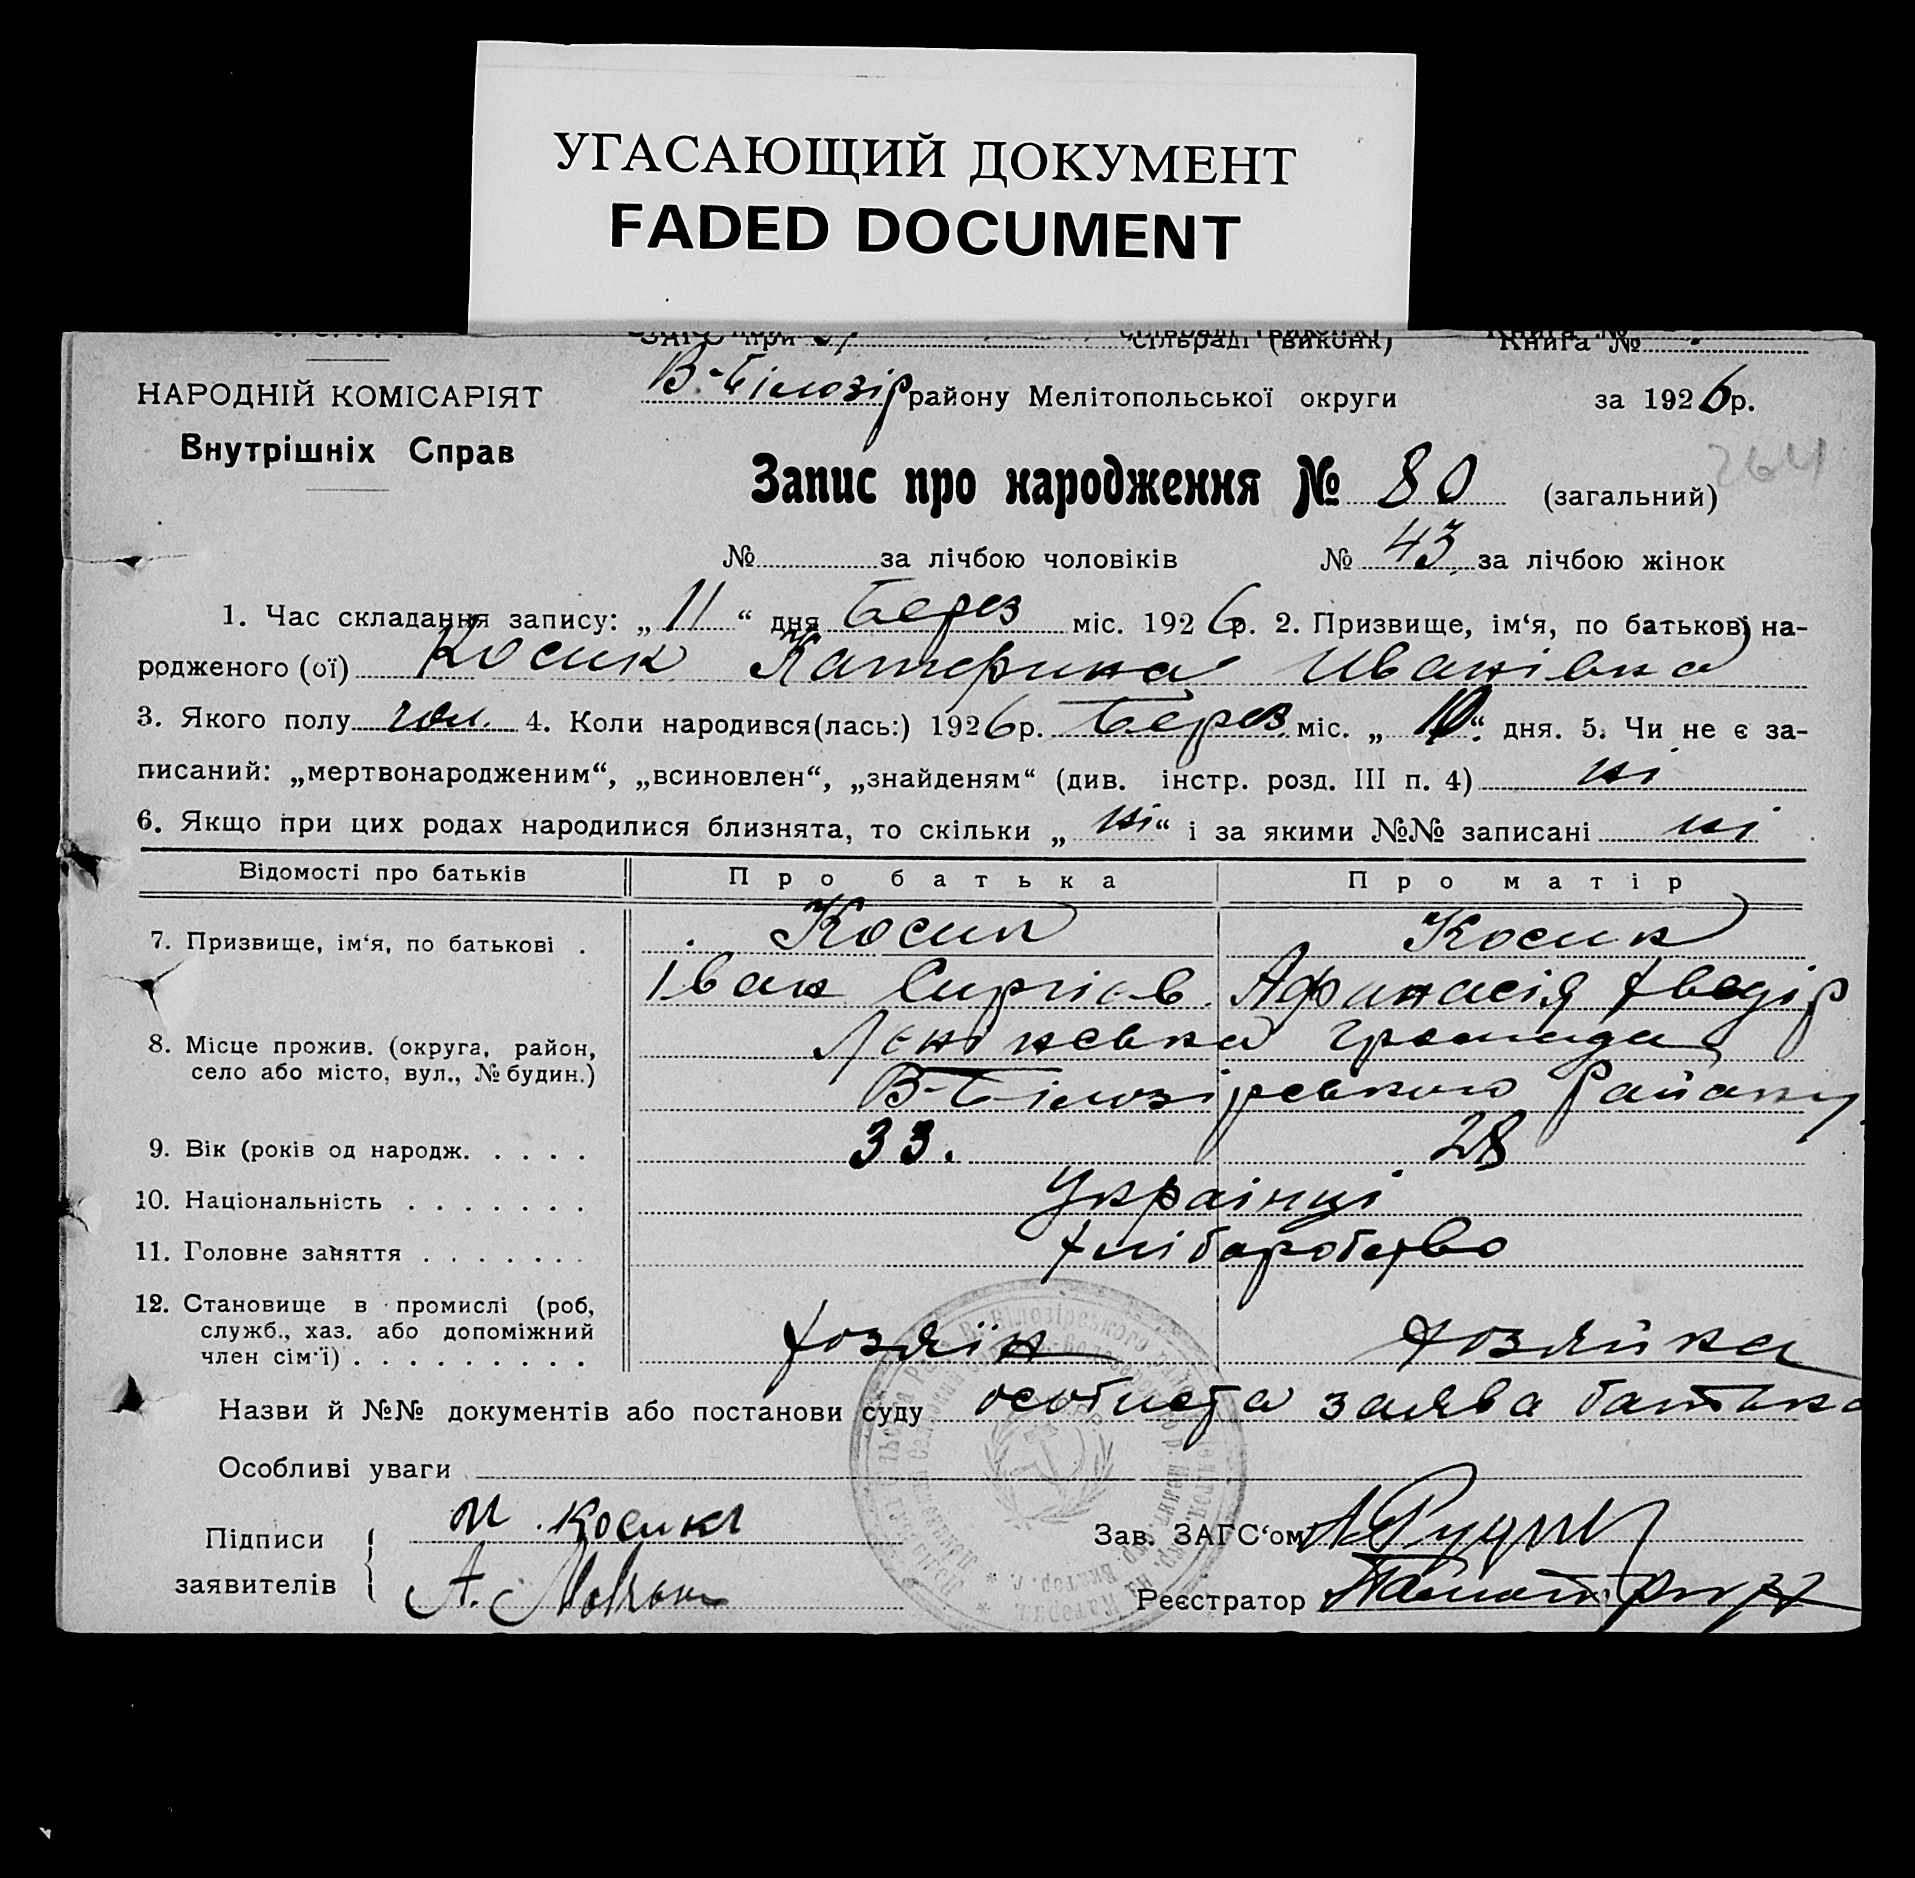 УГАСАЮЩИЙ ДОКУМЕНТ
FADED DOCUMENT
ЗАГС при сільраді (виконк) Книга №
НАРОДНІЙ КОМІСАРІЯТ
В-Білозір району Мелітопольської округи за 1926 р.
Внутрішніх Справ
264
Запис про народження № 80 (загальний)
№ за лічбою чоловіків № 43 за лічбою жінок
1. Час складання запису: „11“ дня Берез міс. 1926 р. 2. Призвище, ім‘я, по батькові на-
родженого (ої) Косик Катерина Иванівна
3. Якого полу жін. 4. Коли народився(лась:) 1926 р. Берез міс. „10“ дня. 5. Чи не є за-
писаний: „мертвонародженим“, „всиновлен“, „знайденям“ (див. інстр. розд. III п. 4) ні
6. Якщо при цих родах народилися близнята, то скільки „ні“ і за якими №№ записані ні
Відомості про батьків Про батька Про матір
7. Призвище, ім‘я, по батькові . Косик Косик
Іван Сиргієв Афанасія Хведір
8. Місце прожив. (округа, район, Ленінська громада
село або місто, вул., № будин.) В-Білозірського Району
9. Вік (років од народж. . . . . 33. 28
10. Національність . . . . . . . Українці
11. Головне заняття . . . . . . . Хліборобство
12. Становище в промислі (роб,
служб., хаз. або допоміжний Хозяїн Хозяйка
член сім‘ї) . . . . . . . . .
Назви й №№ документів або постанови суду особиста заява батька
Особливі уваги
Підписи И. Косикъ Зав. ЗАГС‘ом
заявителів А. Реєстратор